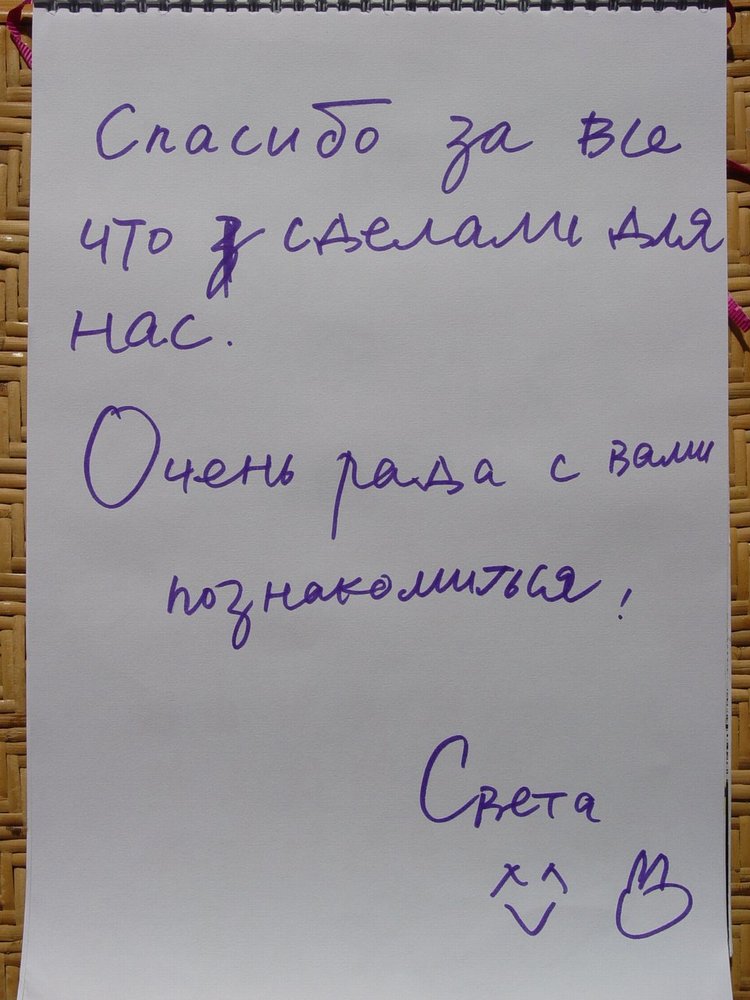 Спасибо за все
что сделали для
нас.
Очень рада с вами
познакомиться!
Света